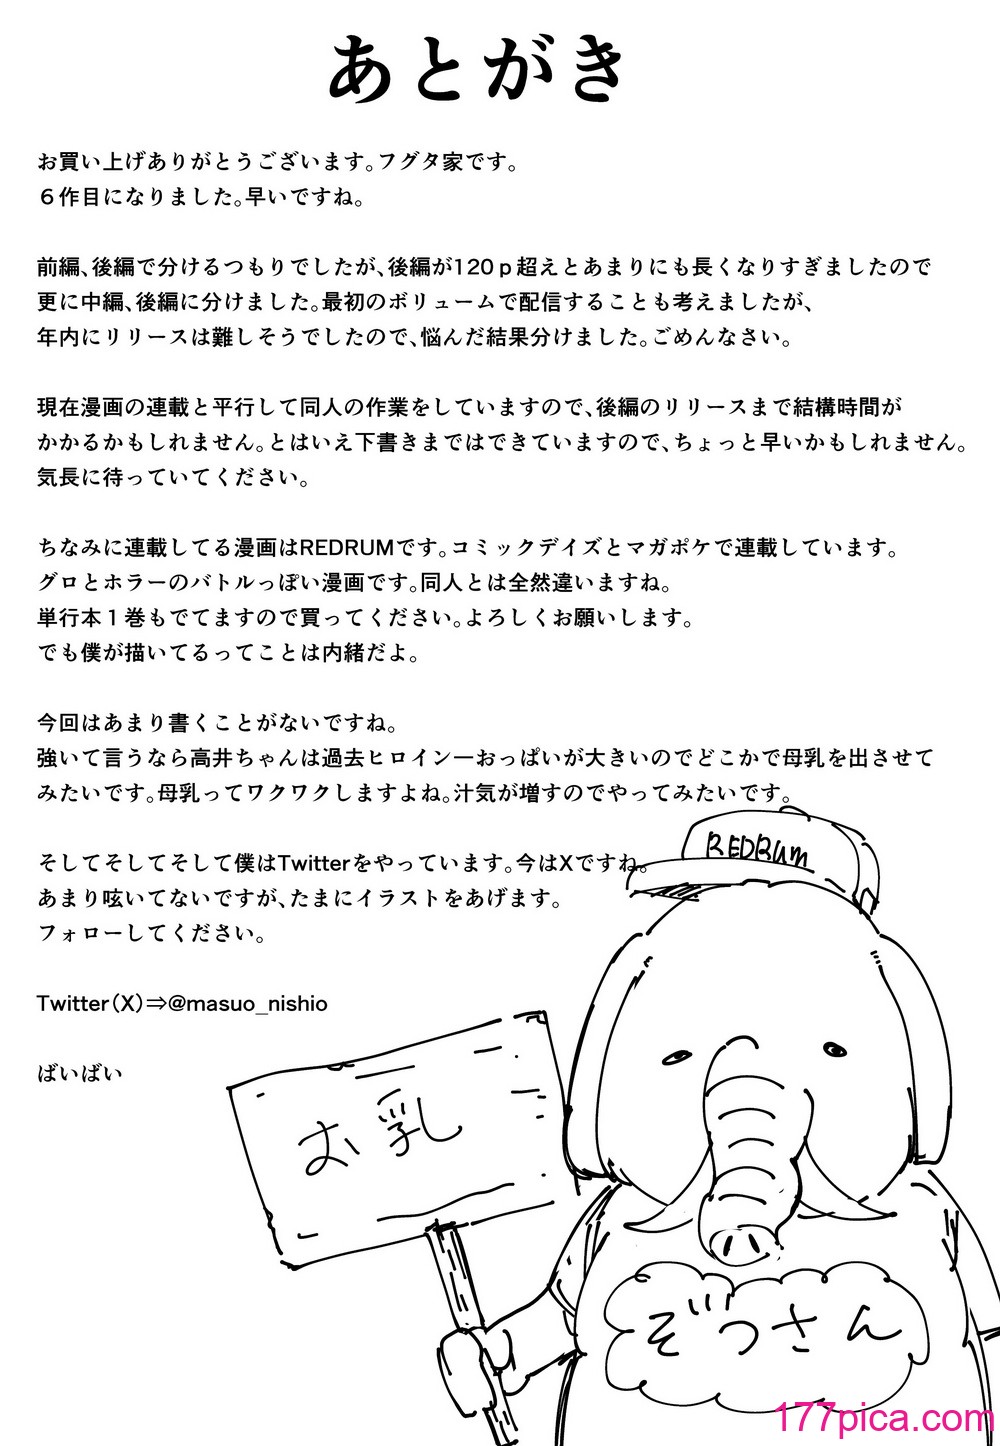 あとがき
お買い上げありがとうございます。フグタ家です。
６作目になりました。早いですね。
前編、後編で分けるつもりでしたが、後編が120ｐ超えとあまりにも長くなりすぎましたので
更に中編、後編に分けました。最初のボリュームで配信することも考えましたが、
年内にリリースは難しそうでしたので、悩んだ結果分けました。ごめんなさい。
現在漫画の連載と平行して同人の作業をしていますので、後編のリリースまで結構時間が
かかるかもしれません。とはいえ下書きまではできていますので、ちょっと早いかもしれません。
気長に待っていてください。
ちなみに連載してる漫画はREDRUMです。コミックデイズとマガポケで連載しています。
グロとホラーのバトルっぽい漫画です。同人とは全然違いますね。
単行本１巻もでてますので買ってください。よろしくお願いします。
でも僕が描いてるってことは内緒だよ。
今回はあまり書くことがないですね。
強いて言うなら高井ちゃんは過去ヒロイン一おっぱいが大きいのでどこかで母乳を出させて
みたいです。母乳ってワクワクしますよね。汁気が増すのでやってみたいです。
REDRUM
そしてそしてそして僕はTwitterをやっています。今はXですね。
あまり呟いてないですが、たまにイラストをあげます。
フォローしてください。
Twitter（X）⇒@masuo_nishio
ばいばい
お乳
ぞうさん
177pica.com